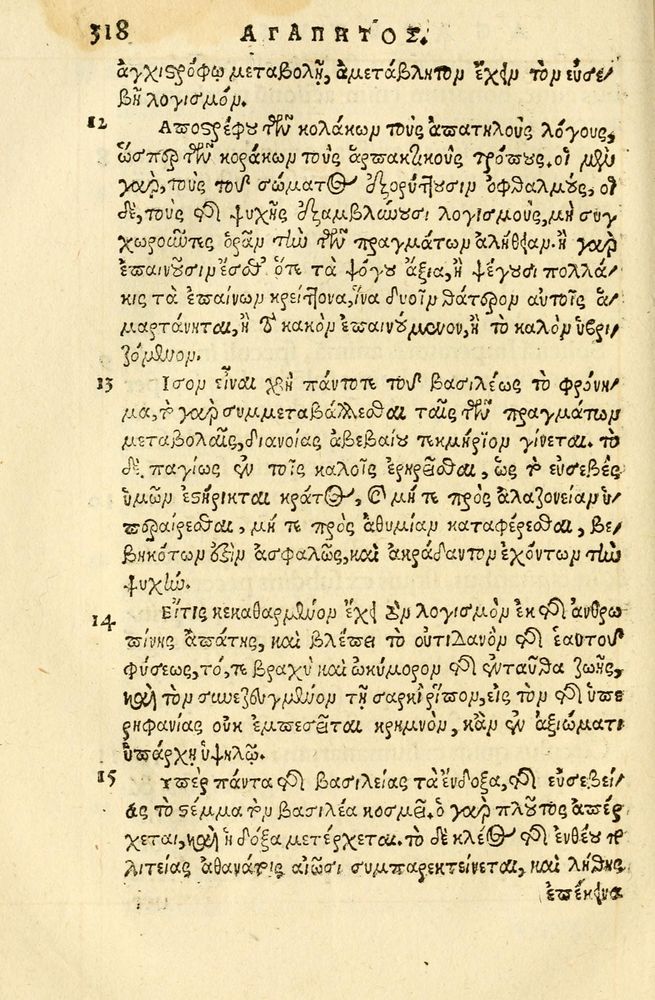 318 ΑΓΑΠΗΤΟΣ.
ἀγχιστρόφῳ μεταβολῇ, ἀμετάβλητον ἔχειν τὸν εὐσε-
βῆ λογισμόν.
12 Αποστρέφου τῶν κολάκων τοὺς ἀπατηλοὺς λόγους,
ὥσπερ τῶν κοράκων τοὺς ἁρπακτικοὺς τρόπους. οἱ μὲν
γὰρ, τοὺς τοῦ σώματος ἐξορύττουσιν ὀφθαλμοὺς, οἱ
δὲ, τοὺς τῆς ψυχῆς ἐξαμβλύουσι λογισμοὺς, μὴ συγ
χωροῦντες ὁρᾶν τὴν τῶν πραγμάτων ἀλήθειαν. ἢ γὰρ
ἐπαινοῦσιν ἔσθ' ὅτε τὰ ψόγου ἄξια, ἢ ψέγουσι πολλά-
κις τὰ ἐπαίνων κρείττονα, ἵνα δυοῖν θάτερον αὐτοῖς ἁ-
μαρτάνηται, ἢ τὸ κακὸν ἐπαινούμενον, ἢ τὸ καλὸν ὑβρι-
ζόμενον.
13 Ισον εἶναι χρὴ πάντοτε τοῦ βασιλέως τὸ φρόνη-
μα, τὸ γὰρ συμμεταβάλλεσθαι ταῖς τῶν πραγμάτων
μεταβολαῖς, διανοίας ἀβεβαίου τεκμήριον γίνεται. τὸ
δὲ παγίως ἐν τοῖς καλοῖς ἐρηρεῖσθαι, ὡς τὸ εὐσεβὲς
ὑμῶν ἐστήρικται κράτος, καὶ μή τε πρὸς ἀλαζονείαν ὑ-
περαίρεσθαι, μή τε πρὸς ἀθυμίαν καταφέρεσθαι, βε-
βηκότων ἐστὶν ἀσφαλῶς, καὶ ἀκράδαντον ἐχόντων τὴν
ψυχήν.
14 Εἴτις κεκαθαρμένον ἔχει τὸν λογισμὸν ἐκ τῆς ἀνθρω
πίνης ἀπάτης, καὶ βλέπει τὸ οὐτιδανὸν τῆς ἑαυτοῦ
φύσεως, τό, τε βραχὺ καὶ ὠκύμορον τῆς ἐνταῦθα ζωῆς,
καὶ τὸν συνεζευγμένον τῇ σαρκὶ ῥύπον, εἰς τὸν τῆς ὑπε
ρηφανίας οὐκ ἐμπεσεῖται κρημνὸν, κἂν ἐν ἀξιώματι
ὑπάρχῃ ὑψηλῷ.
15 Υπὲρ πάντα τῆς βασιλείας τὰ ἔνδοξα, τῆς εὐσεβεί-
ας τὸ στέμμα τὸν βασιλέα κοσμεῖ. ὁ γὰρ πλοῦτος ἀπέρ
χεται, καὶ ἡ δόξα μετέρχεται. τὸ δὲ κλέος τῆς ἐνθέου πο
λιτείας ἀθανάτοις αἰῶσι συμπαρεκτείνεται, καὶ λήθης
ἐπέκεινα